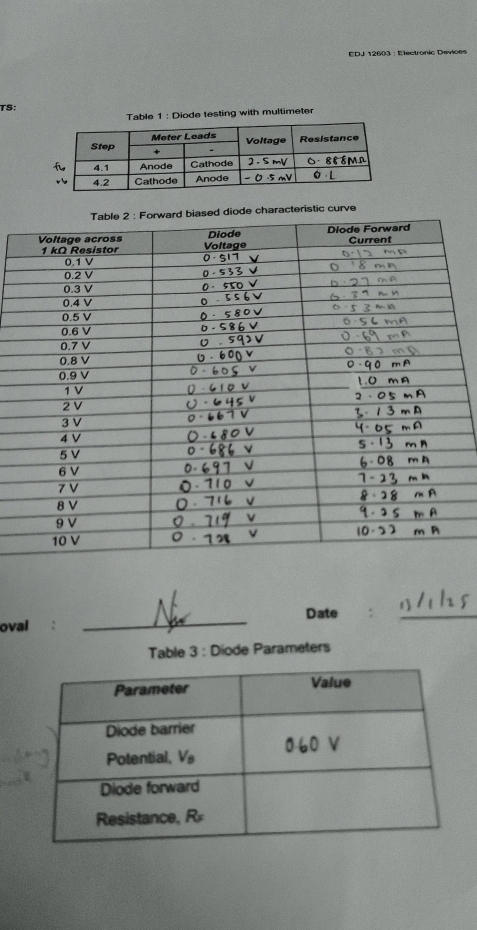 EDJ 12603 : Electronic Devices
TS:
Table 1 : Diode testing with multimeter
Step Meter Leads Voltage Resistance
+ -
4.1 Anode Cathode 2.5 mV 0.888MΩ
4.2 Cathode Anode -0.5 mV 0.L
Table 2 : Forward biased diode characteristic curve
Voltage across 1 kΩ Resistor Diode Voltage Diode Forward Current
0.1 V 0.517 V mA
0.2 V 0.533 V 0.18 mA
0.3 V 0.550 V 0.27 mA
0.4 V 0.556 V 0.39 mA
0.5 V 0.580 V 0.53 mA
0.6 V 0.586 V 0.56 mA
0.7 V 0.592 V 0.69 mA
0.8 V 0.600 V 0.82 mA
0.9 V 0.605 V 0.90 mA
1 V 0.610 V 1.0 mA
2 V 0.645 V 2.05 mA
3 V 0.667 V 3.13 mA
4 V 0.680 V 4.05 mA
5 V 0.686 V 5.13 mA
6 V 0.697 V 6.08 mA
7 V 0.710 V 7.23 mA
8 V 0.716 V 8.28 mA
9 V 0.719 V 9.25 mA
10 V 0.728 V 10.22 mA
oval :
Date : 13/1/25
Table 3 : Diode Parameters
Parameter Value
Diode barrier Potential, VB 060 V
Diode forward Resistance, RF